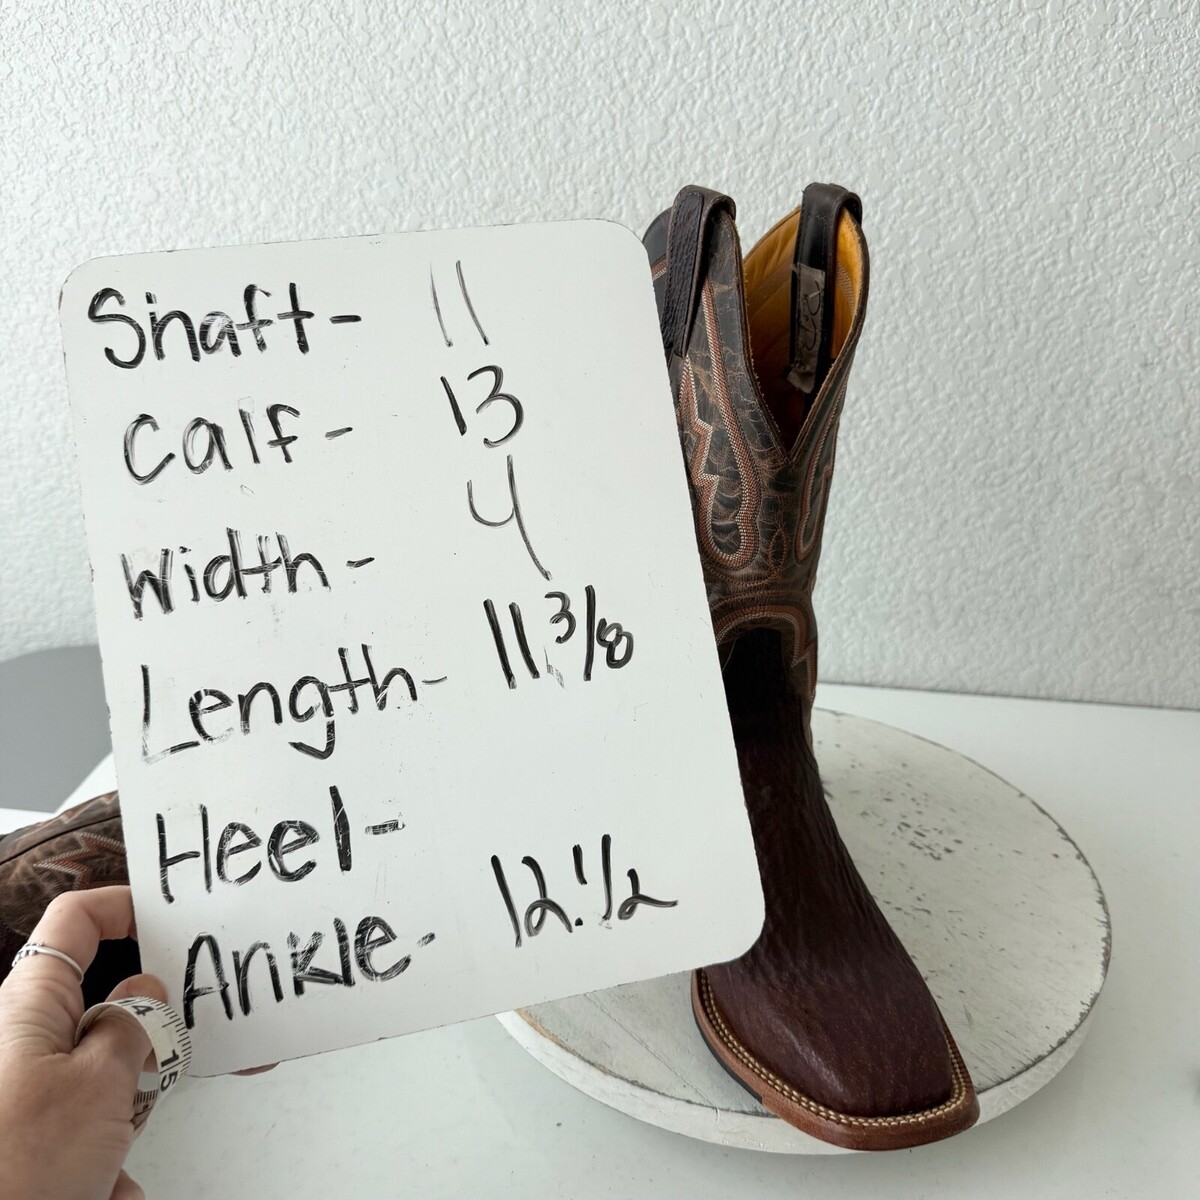 Shaft- 11
Calf- 13
Width- 4
Length- 11 3/8
Heel-
Ankle- 12.1/2
4
15